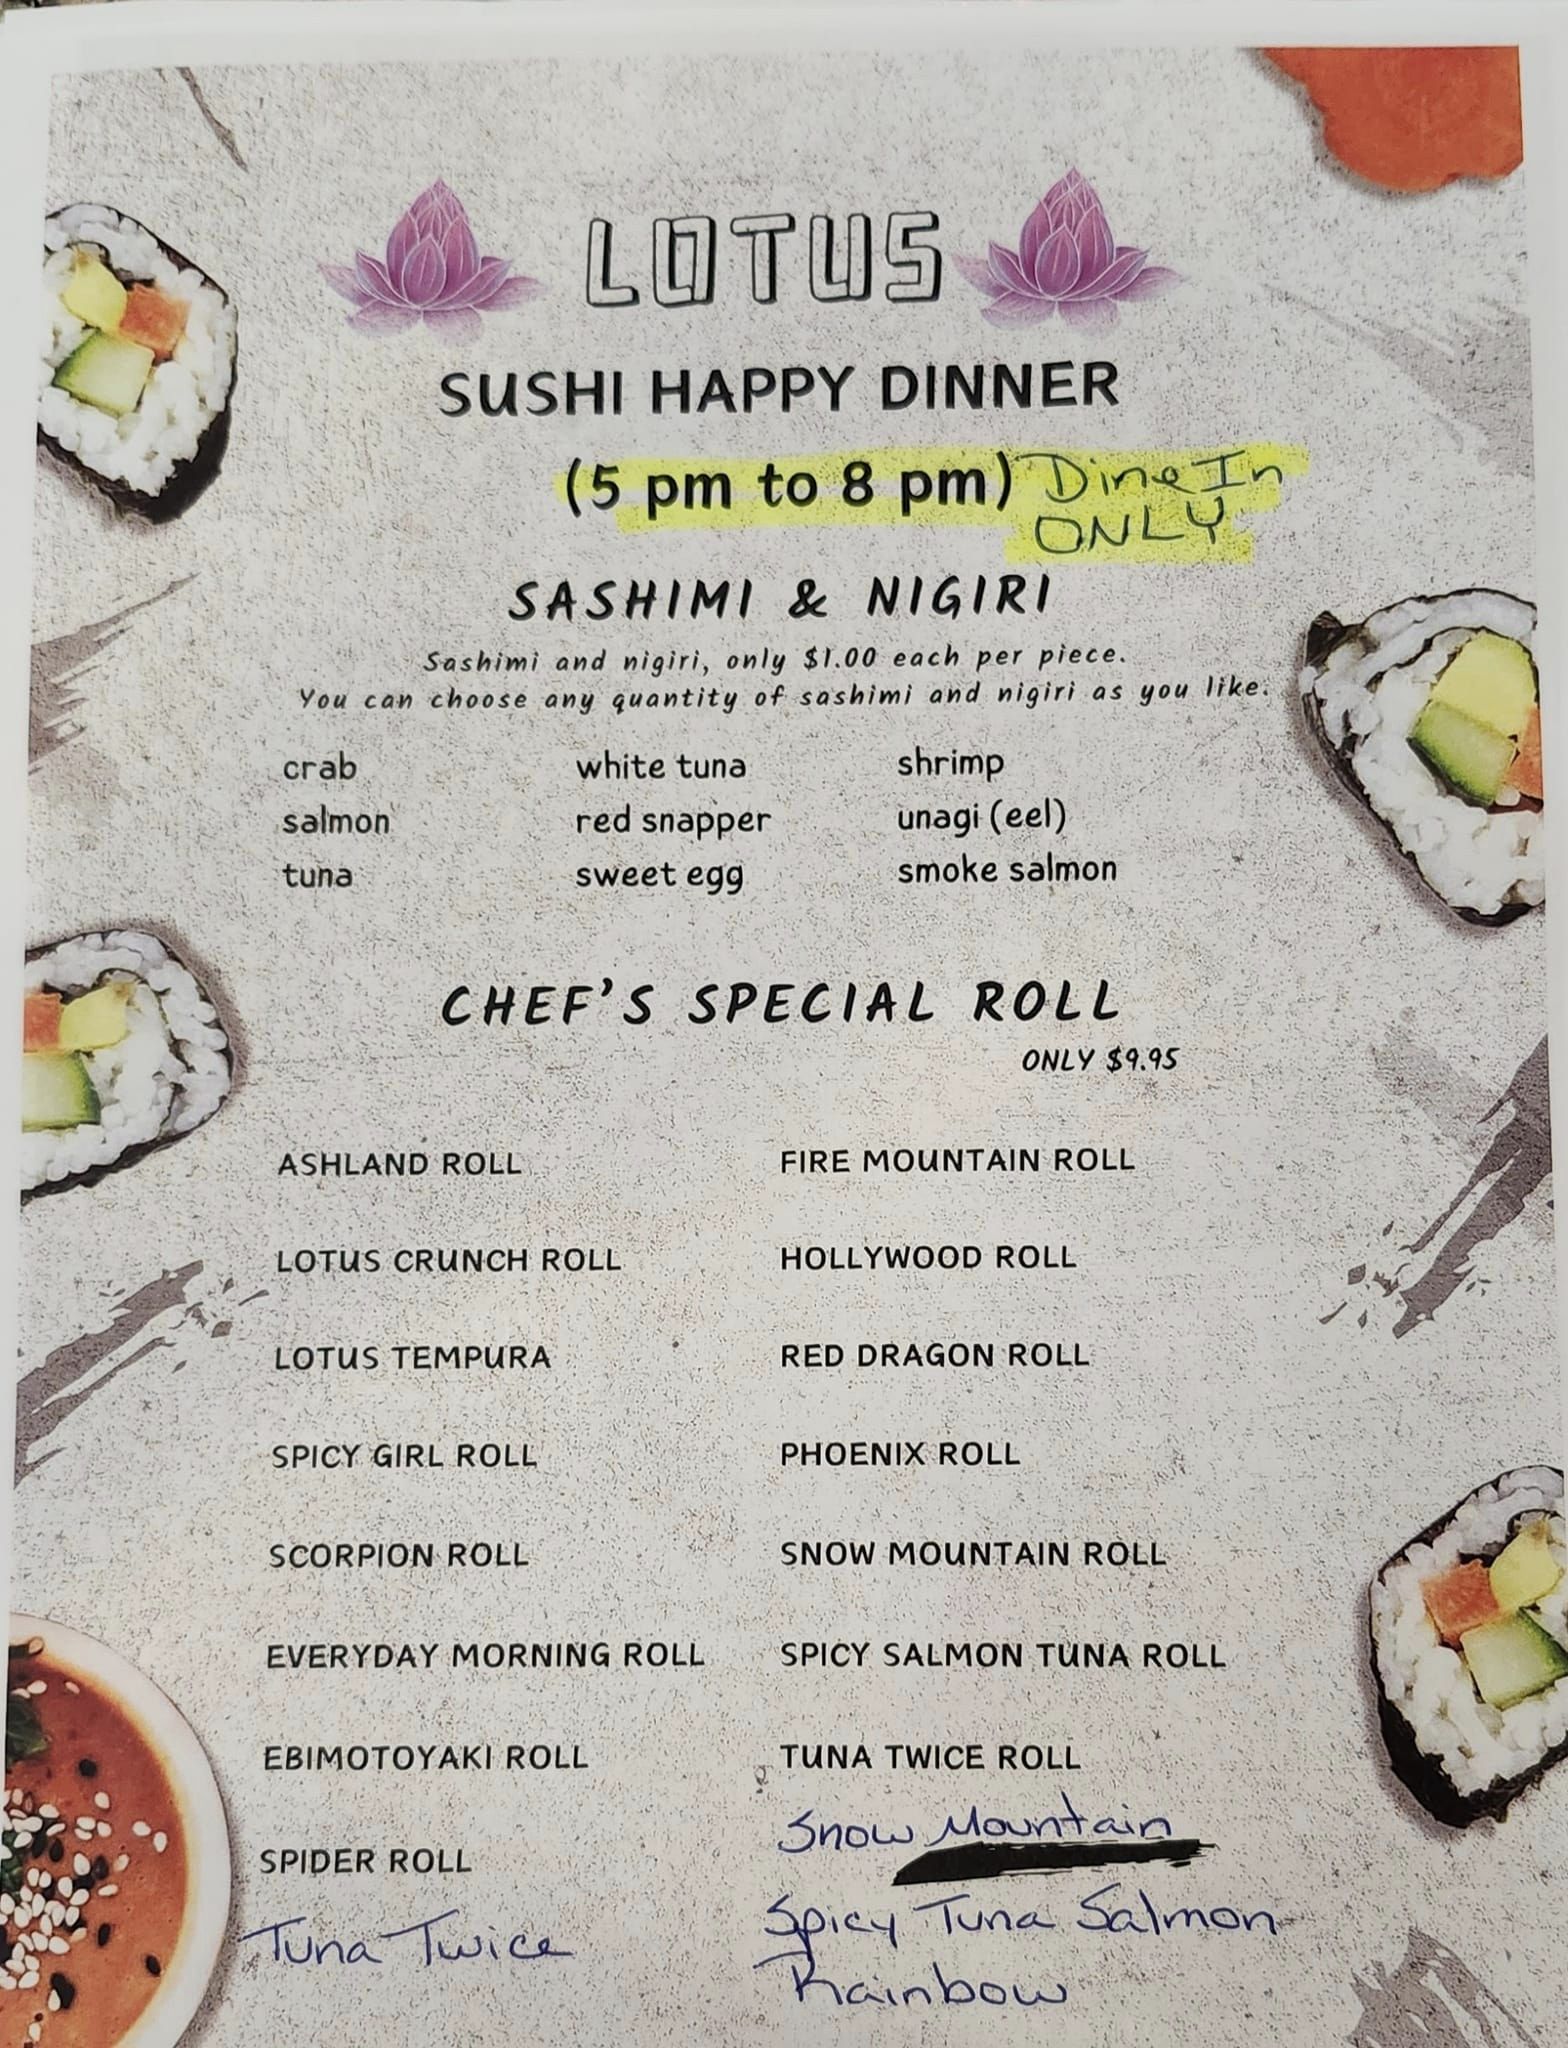 LOTUS
SUSHI HAPPY DINNER
(5 pm to 8 pm) Dine In
ONLY
SASHIMI & NIGIRI
Sashimi and nigiri, only $1.00 each per piece.
You can choose any quantity of sashimi and nigiri as you like.
crab white tuna shrimp
salmon red snapper unagi (eel)
tuna sweet egg smoke salmon
CHEF'S SPECIAL ROLL
ONLY $9.95
ASHLAND ROLL FIRE MOUNTAIN ROLL
LOTUS CRUNCH ROLL HOLLYWOOD ROLL
LOTUS TEMPURA RED DRAGON ROLL
SPICY GIRL ROLL PHOENIX ROLL
SCORPION ROLL SNOW MOUNTAIN ROLL
EVERYDAY MORNING ROLL SPICY SALMON TUNA ROLL
EBIMOTOYAKI ROLL TUNA TWICE ROLL
Snow Mountain
SPIDER ROLL
Tuna Twice Spicy Tuna Salmon
Rainbow